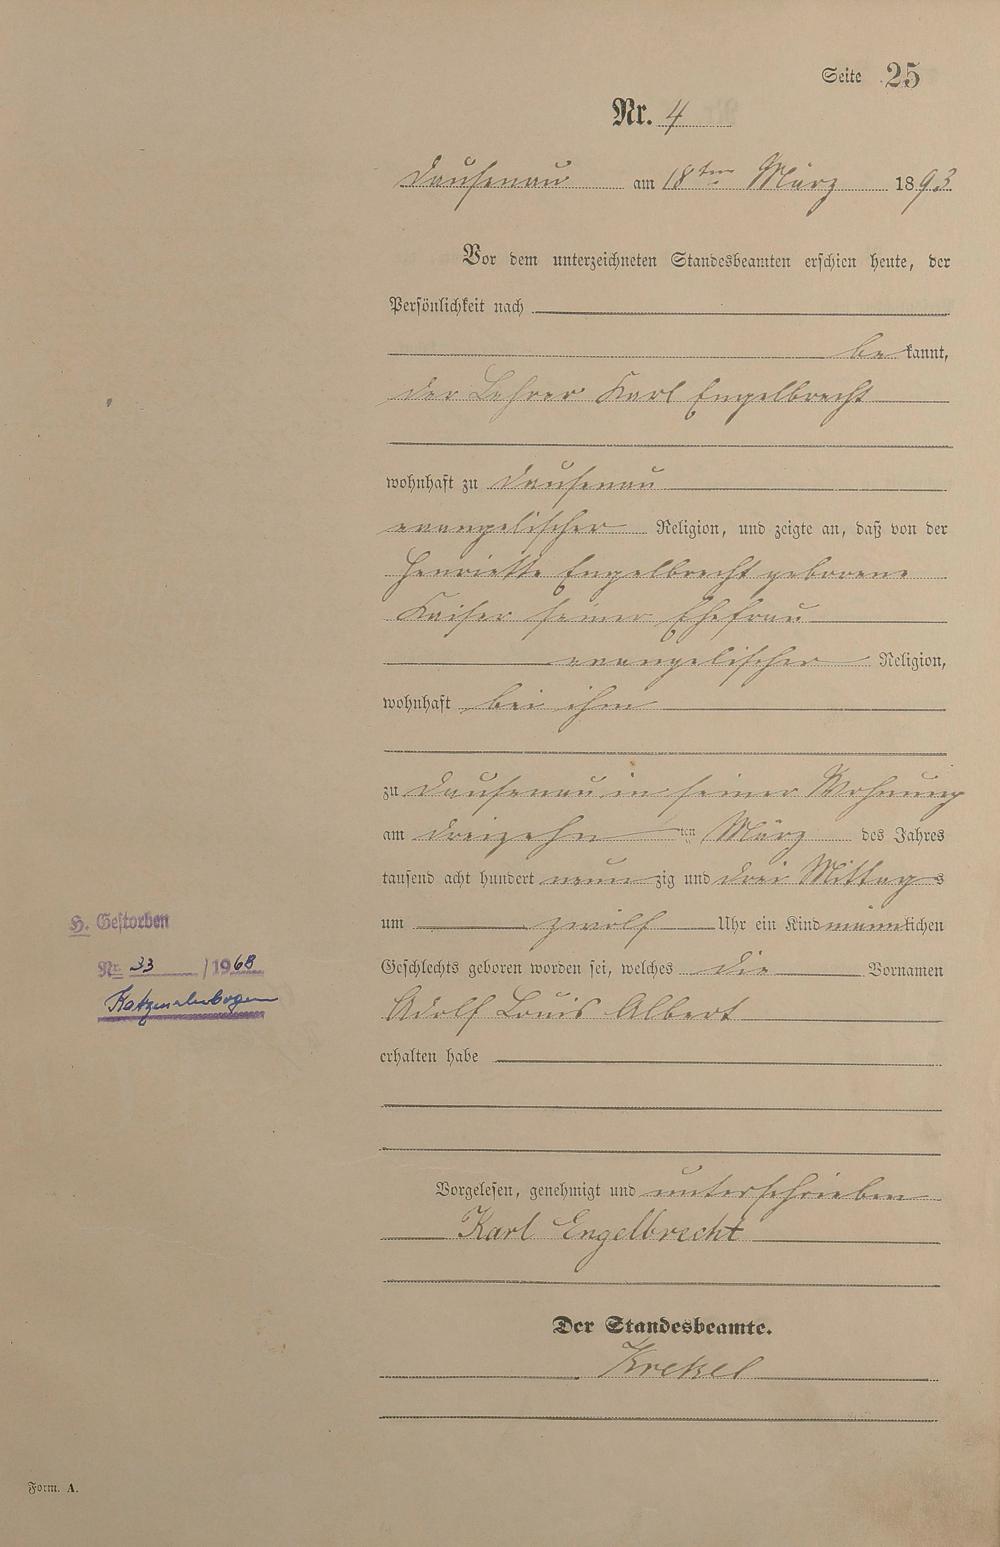 Seite 25
Nr. 4
Dausenau am 18ten März 1893
Vor dem unterzeichneten Standesbeamten erschien heute, der
Persönlichkeit nach
bekannt,
der Lehrer Karl Engelbrecht
wohnhaft zu Dausenau
evangelischer Religion, und zeigte an, daß von der
Henriette Engelbrecht geborene
Kaiser seiner Ehefrau
evangelischer Religion,
wohnhaft bei ihm
zu Dausenau in seiner Wohnung
am dreizehn ten März des Jahres
tausend acht hundert neunzig und drei Mittags
um zwölf Uhr ein Kind männlichen
Geschlechts geboren worden sei, welches die Vornamen
Adolf Louis Albert
erhalten habe
H. Gestorben
Nr. 33 / 1968
Katzenelnbogen
Vorgelesen, genehmigt und unterschrieben
Karl Engelbrecht
Der Standesbeamte.
Krekel
Form. A.